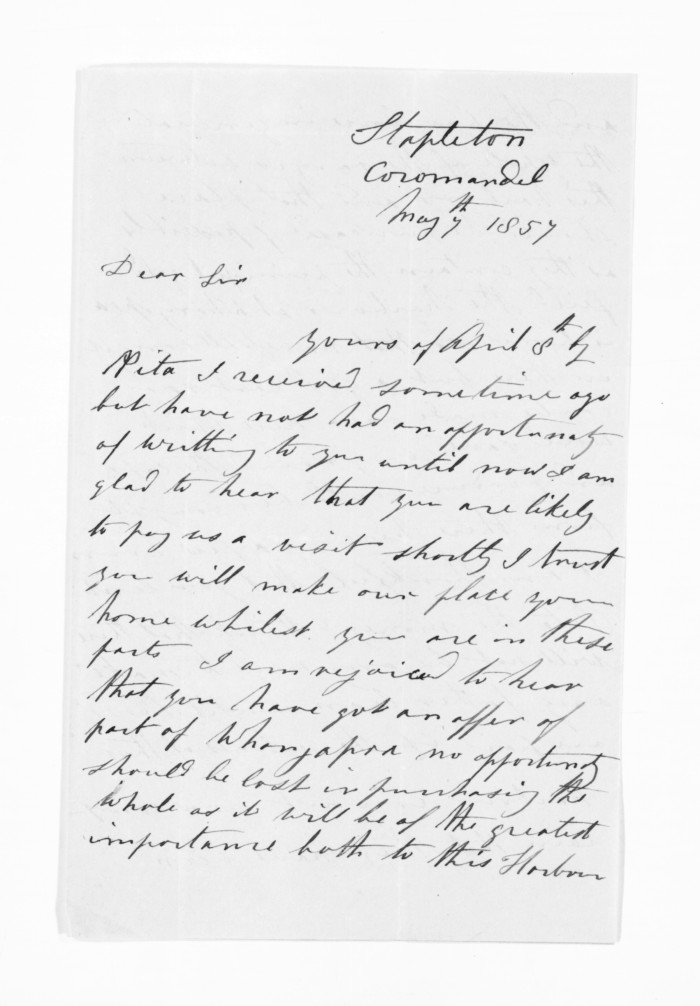 Stapleton
Coromandel
May 7th 1857
Dear Sir
yours of April 8th by
Pita I received sometime ago
but have not had an opportunaty
of writting to you until now I am
glad to hear that you are likely
to pay us a visit shortly I trust
you will make our place your
home whilest you are in these
parts I am rejoiced to hear
that you have got an offer of
part of Whangapoa no opportunity
should be lost in purchasing the
whole as it will be of the greatest
importance both to this Harbour